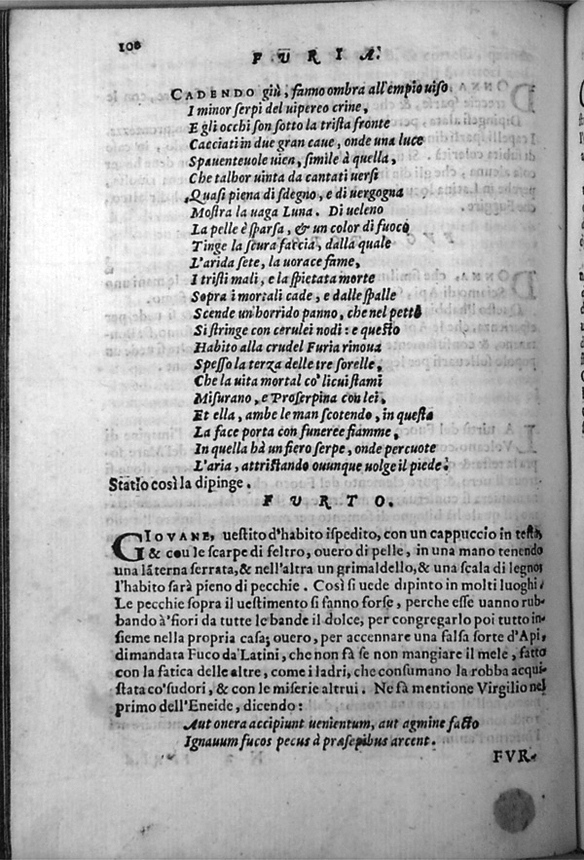 108
FVRIA.
CADENDO giù, fanno ombra all'empio uiso
I minor serpi del uipereo crine,
E gli occhi son sotto la trista fronte
Cacciati in due gran caue, onde una luce
Spauenteuole uien, simile à quella,
Che talhor uinta da cantati uersi
Quasi piena di sdegno, e di uergogna
Mostra la uaga Luna. Di ueleno
La pelle è sparsa, & un color di fuoco
Tinge la scura faccia, dalla quale
L'arida sete, la uorace fame,
I tristi mali, e la spietata morte
Sopra i mortali cade, e dalle spalle
Scende un'horrido panno, che nel petto
Si stringe con cerulei nodi: e questo
Habito alla crudel Furia rinoua
Spesso la terza delle tre sorelle,
Che la uita mortal co' licui stami
Misurano, e Proserpina con lei,
Et ella, ambe le man scotendo, in questa
La face porta con funeree fiamme,
In quella hà un fiero serpe, onde percuote
L'aria, attristando ouunque uolge il piede:
Statio così la dipinge.
FVRTO.
GIOVANE, uestito d'habito ispedito, con un cappuccio in testa,
& cou le scarpe di feltro, ouero di pelle, in una mano tenendo
una lāterna serrata, & nell'altra un grimaldello, & una scala di legno;
l'habito sarà pieno di pecchie. Così si uede dipinto in molti luoghi.
Le pecchie sopra il uestimento si fanno forse, perche esse uanno rub-
bando à'fiori da tutte le bande il dolce, per congregarlo poi tutto in-
sieme nella propria casa; ouero, per accennare una falsa sorte d'Api,
dimandata Fuco da'Latini, che non fà se non mangiare il mele, fatto
con la fatica delle altre, come i ladri, che consumano la robba acqui-
stata co'sudori, & con le miserie altrui. Ne fà mentione Virgilio nel
primo dell'Eneide, dicendo:
Aut onera accipiunt uenientum, aut agmine facto
Ignauum fucos pecus à præsepibus arcent.
FVR-